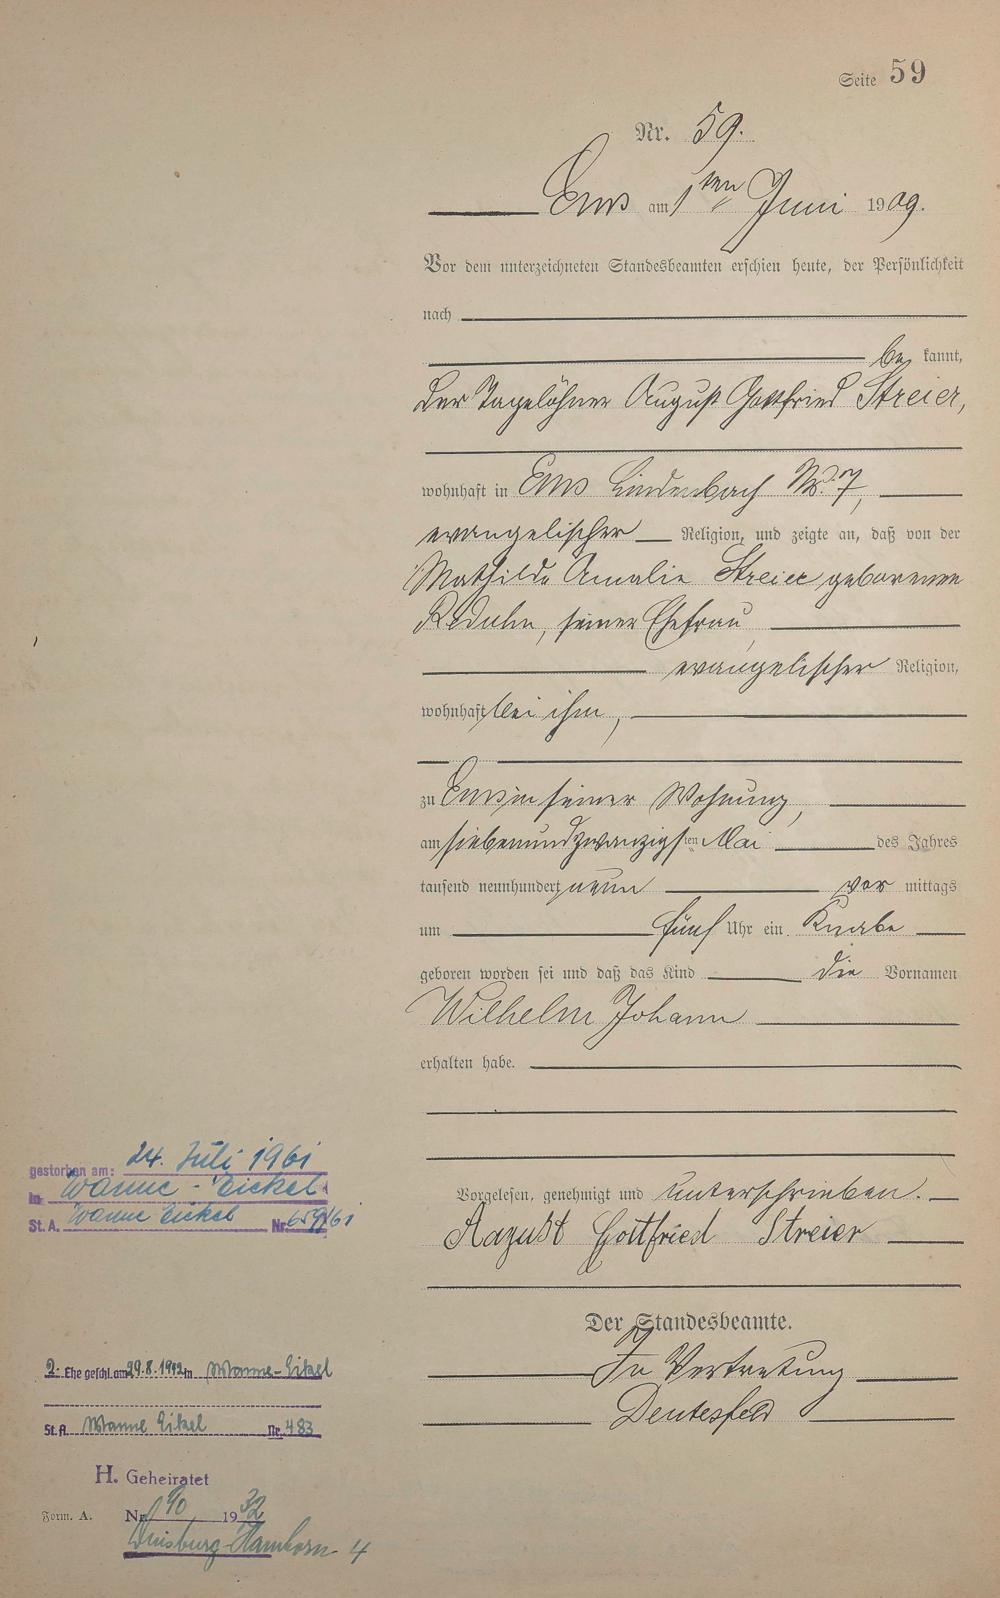 Seite 59
Nr. 59.
Ems am 1ten Juni 1909.
Vor dem unterzeichneten Standesbeamten erschien heute, der Persönlichkeit
nach
be kannt,
der Tagelöhner August Gottfried Streier,
wohnhaft in Ems Lindenbach No. 7,
evangelischer Religion, und zeigte an, daß von der
Mathilde Amalie Streier geborenen
seiner Ehefrau
evangelischer Religion,
wohnhaft bei ihm,
zu Ems in seiner Wohnung,
am siebenundzwanzigsten Mai des Jahres
tausend neunhundert neun vor mittags
um fünf Uhr ein Knabe
geboren worden sei und daß das Kind die Vornamen
Wilhelm Johann
erhalten habe.
Vorgelesen, genehmigt und unterschrieben.
August Gottfried Streier
Der Standesbeamte.
In Vertretung
Deutesfeld
gestorben am: 24. Juli 1961
in Wanne-Eickel
St. A. Wanne Eickel Nr.
2. Ehe geschl. am 29.8. in Wanne-Eikel
St. A. Wanne Eikel Nr. 483
H. Geheiratet
Form. A. Nr. 190 1932
Duisburg-Hamborn 4